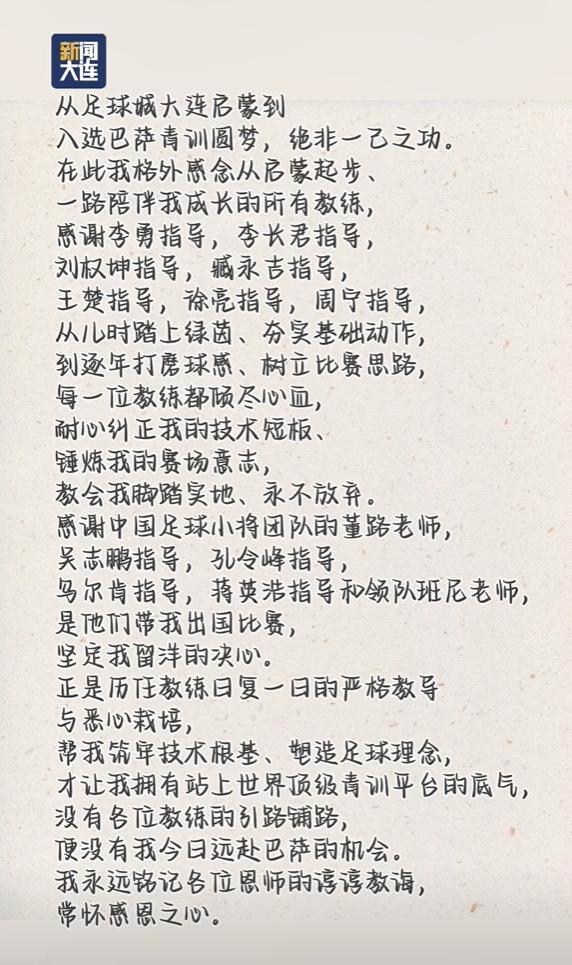 新闻
大连
从足球城大连启蒙到
入选巴萨青训圆梦，绝非一己之功。
在此我格外感念从启蒙起步、
一路陪伴我成长的所有教练，
感谢李勇指导，李长君指导，
刘权坤指导，臧永吉指导，
王楚指导，徐亮指导，周宁指导，
从儿时踏上绿茵、夯实基础动作，
到逐年打磨球感、树立比赛思路，
每一位教练都倾尽心血，
耐心纠正我的技术短板、
锤炼我的赛场意志，
教会我脚踏实地、永不放弃。
感谢中国足球小将团队的董路老师，
吴志鹏指导，孔令峰指导，
乌尔肯指导，蒋英浩指导和领队班尼老师，
是他们带我出国比赛，
坚定我留洋的决心。
正是历任教练日复一日的严格教导
与悉心栽培，
帮我筑牢技术根基、塑造足球理念，
才让我拥有站上世界顶级青训平台的底气，
没有各位教练的引路铺路，
便没有我今日远赴巴萨的机会。
我永远铭记各位恩师的谆谆教诲，
常怀感恩之心。